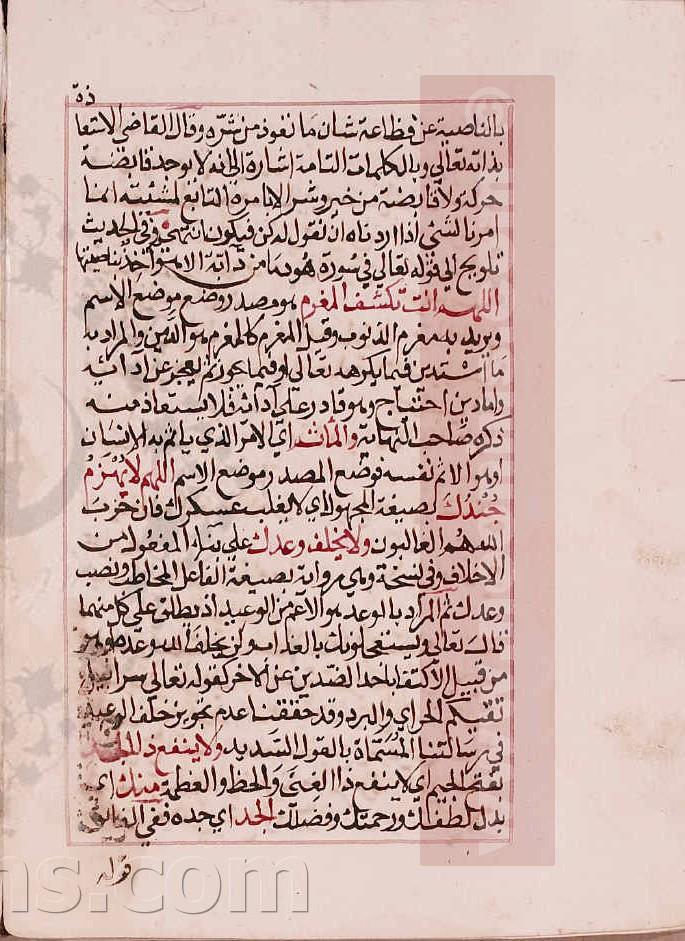 ذة
بالناصية عن فظاعة شان ما نعوذ من شره وقال القاضي الاستعا
بذاته تعالى وبالكلمات التامة اشارة الى انه لا يوجد قابضة
حركة ولا قابضة من خير وشر الا بامره التابع لمشئيته انما
امرنا لشئ اذا اردناه ان نقول له كن فيكون انتهى وفي الحديث
تلويح الى قوله تعالى في سورة هود ما من دابة الا هو اخذ بناصيتها
اللهم انت تكشف المغرم هو مصدر وضع موضع الاسم
ويريد به مغرم الذنوب وقيل المغرم كالمغرم هو الدين والمراد به
ما استدين فيما يكرهه تعالى او فيما يجوز ثم يعجز عن آدائه
واما دين احتاج وهو قادر على آدائه فلا يستعاذ منه
ذكره صاحب النهاية والماثم اي الامر الذي ياثم به الانسان
او هو الاثم نفسه فوضع المصدر موضع الاسم اللهم لا يهزم
جندك بصيغة المجهول اي لا يغلب عسكرك فان حزب
الله هم الغالبون ولا يخلف وعدك على بناء المفعول من
الاخلاف وفي نسخة وهي رواية بصيغة الفاعل المخاطب ونصب
وعدك ثم المراد بالوعد هو الاعم من الوعيد اذ يطلق على كل منهما
قال تعالى ويستعجلونك بالعذاب ولن يخلف الله وعده وهو
من قبيل الاكتفاء باحد الضدين عن الاخر كقوله تعالى سرابيل
تقيكم الحر اي والبرد وقد حققنا عدم تجويز خلف الوعيد
في رسالتنا المسماة بالقول السديد ولا ينفع ذا الجد
بفتح الجيم اي لا ينفع ذا الغنى والحظ والعظمة منك اي
بدل لطفك ورحمتك وفضلك الجد اي جده ففي الفائق
قوله
ns.com